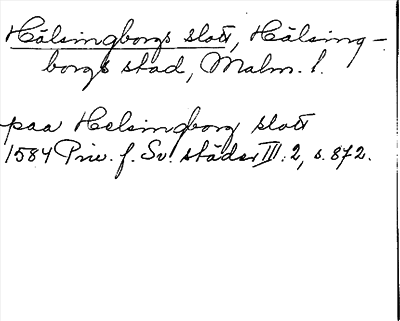 Hälsingborgs slott, Hälsing-
borgs stad, Malm. l.
paa Helsingborg slott
1584 Priv. f. Sv. städer III: 2, s. 872.